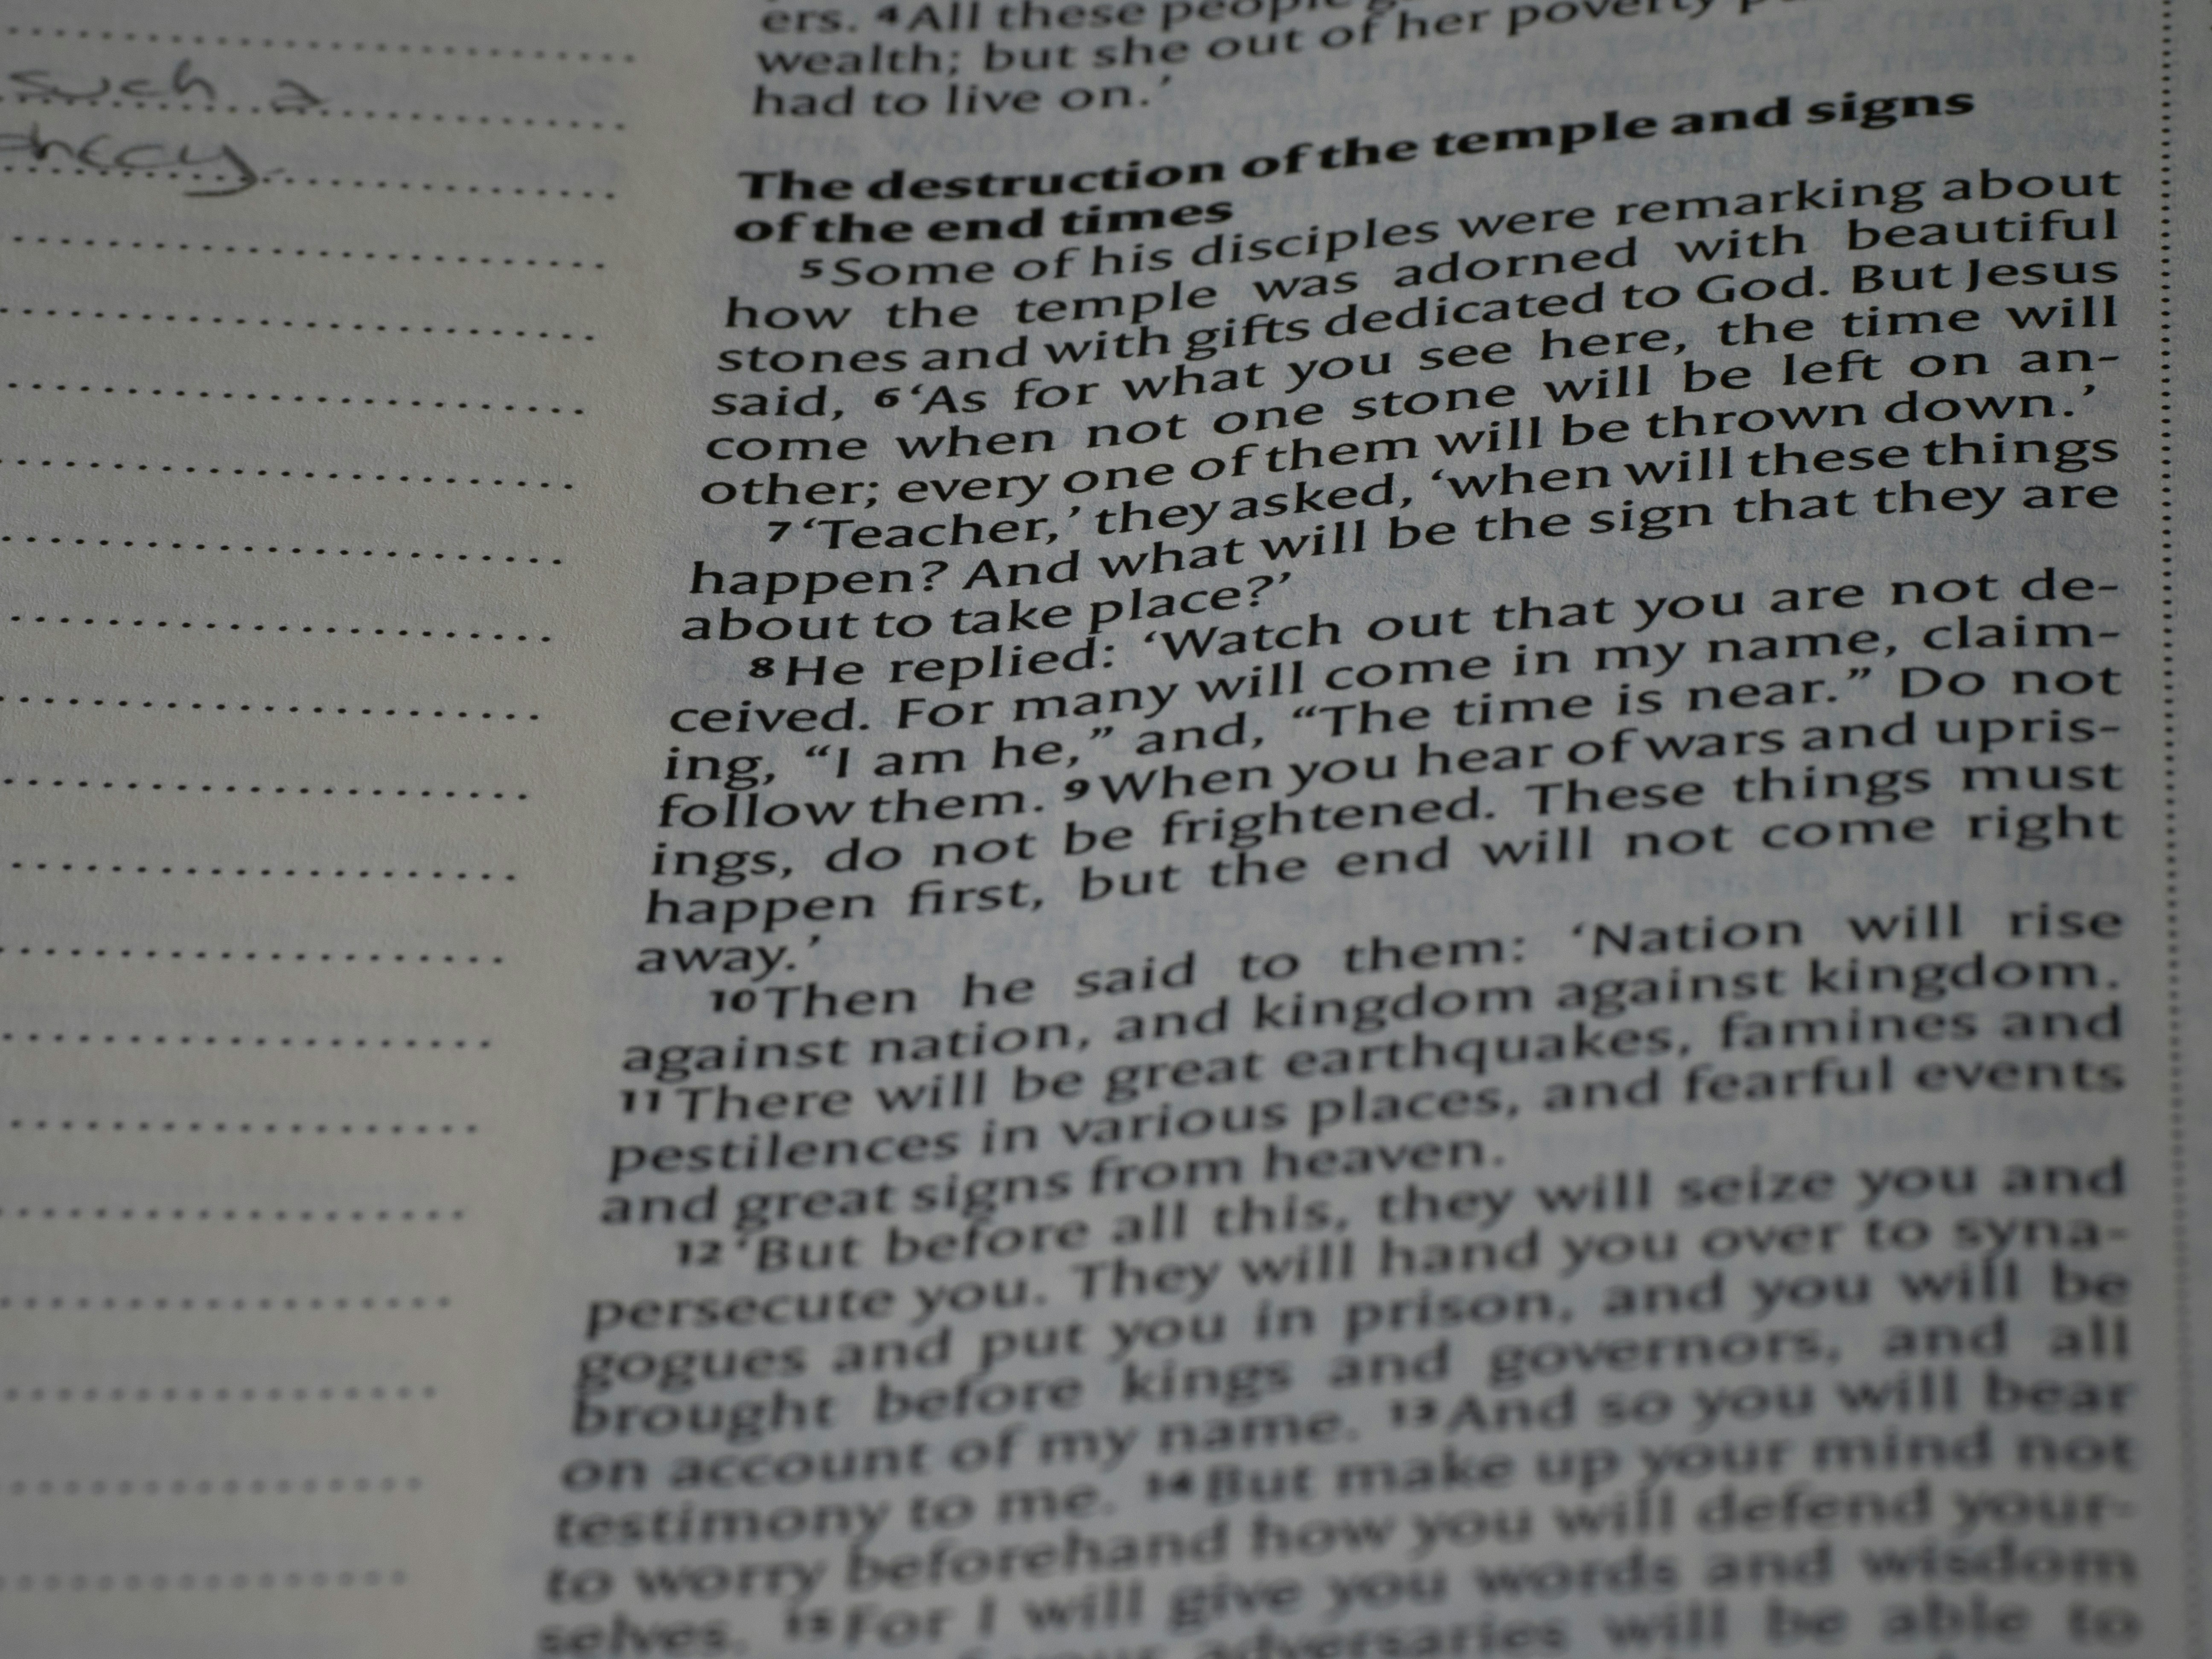 such a
ers. 4 All these
wealth; but she out of her poverty
had to live on.’
The destruction of the temple and signs
of the end times
5 Some of his disciples were remarking about
how the temple was adorned with beautiful
stones and with gifts dedicated to God. But Jesus
said, 6 ‘As for what you see here, the time will
come when not one stone will be left on an-
other; every one of them will be thrown down.’
7 ‘Teacher,’ they asked, ‘when will these things
happen? And what will be the sign that they are
about to take place?’
8 He replied: ‘Watch out that you are not de-
ceived. For many will come in my name, claim-
ing, “I am he,” and, “The time is near.” Do not
follow them. 9 When you hear of wars and upris-
ings, do not be frightened. These things must
happen first, but the end will not come right
away.’
10 Then he said to them: ‘Nation will rise
against nation, and kingdom against kingdom.
11 There will be great earthquakes, famines and
pestilences in various places, and fearful events
and great signs from heaven.
12 ‘But before all this, they will seize you and
persecute you. They will hand you over to syna-
gogues and put you in prison, and you will be
brought before kings and governors, and all
on account of my name. 13 And so you will bear
testimony to me. 14 But make up your mind not
to worry beforehand how you will defend your-
selves. 15 For I will give you words and wisdom
adversaries will be able to